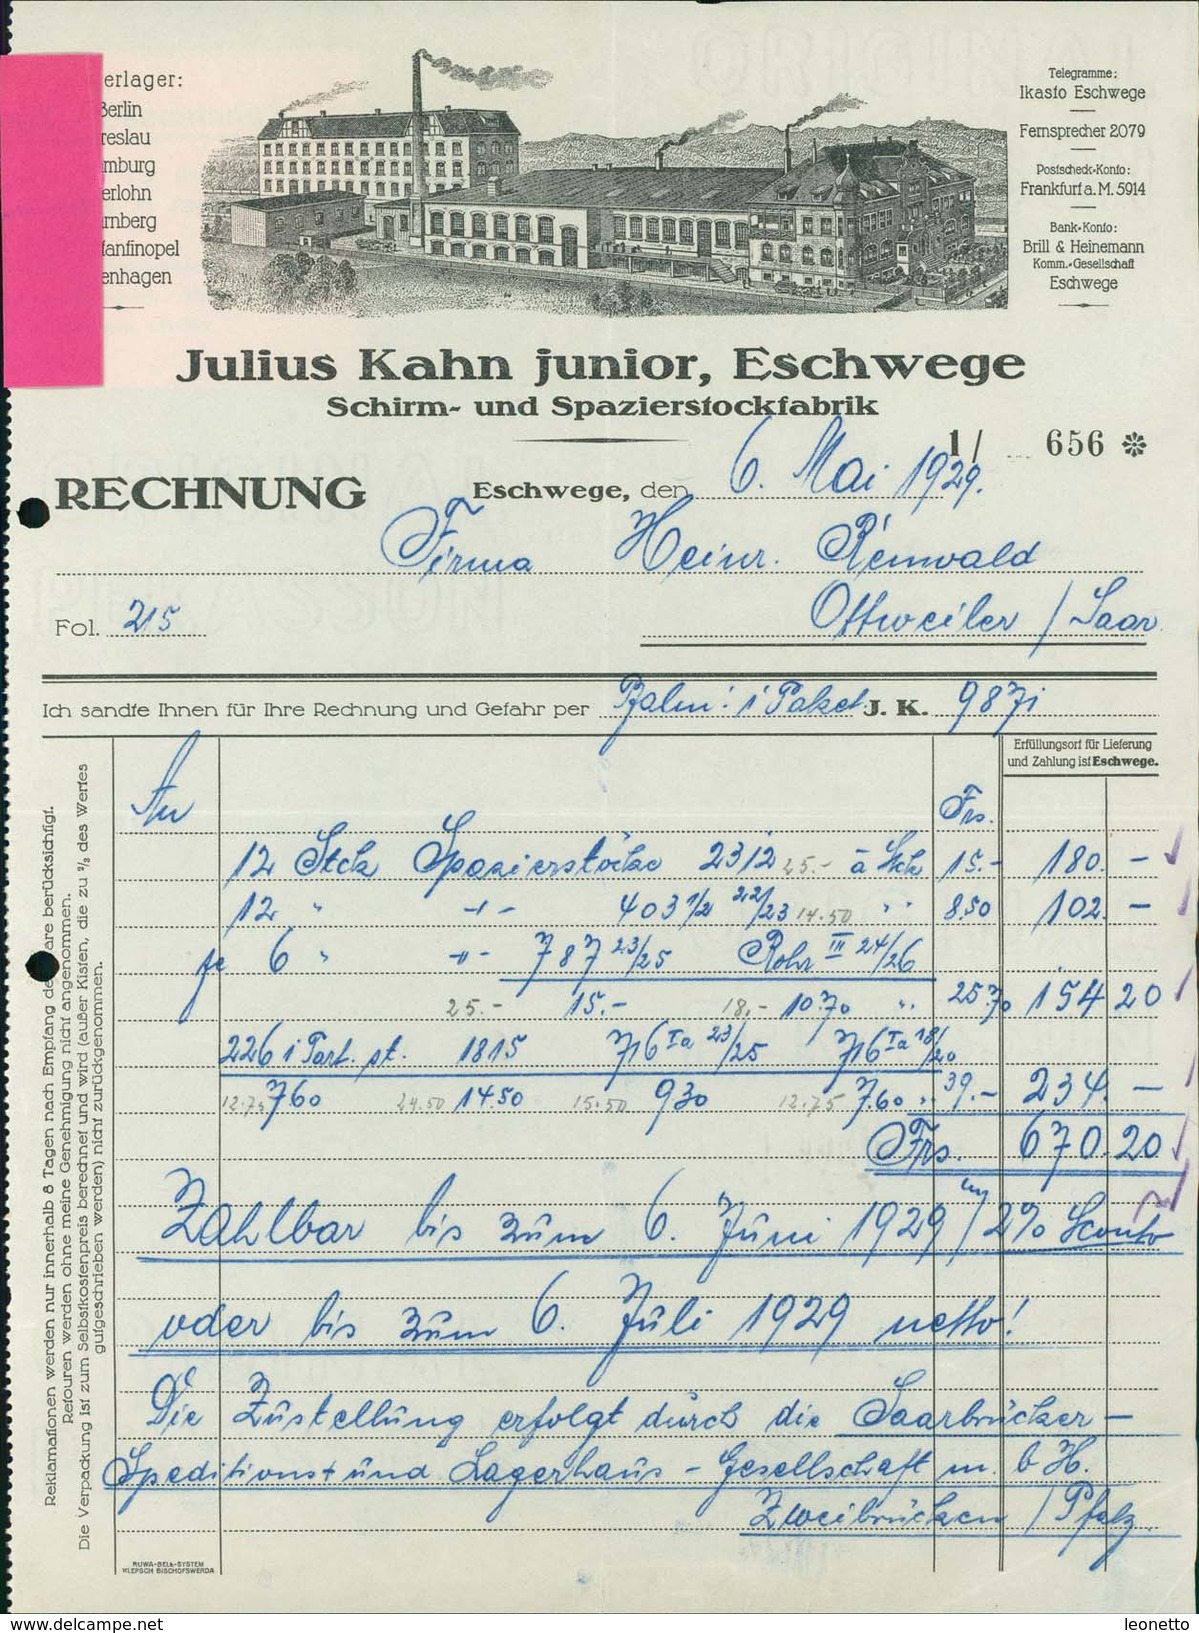 erlager:
Berlin
reslau
mburg
erlohn
rnberg
tantinopel
enhagen
Telegramme:
Ikasto Eschwege
Fernsprecher 2079
Postscheck-Konto:
Frankfurt a. M. 5914
Bank-Konto:
Brill & Heinemann
Komm.-Gesellschaft
Eschwege
Julius Kahn junior, Eschwege
Schirm- und Spazierstockfabrik
1/ 656
RECHNUNG Eschwege, den 6. Mai 1929.
Firma Heinr. Reinwald
Ottweiler / Saar
Fol. 215
Ich sandte Ihnen für Ihre Rechnung und Gefahr per 1 Paket J. K. 9871
Erfüllungsort für Lieferung
und Zahlung ist Eschwege.
An Frs.
12 Stck Spazierstöcke 2312 25.- à Stck 15.- 180. -
12 " -"- 403 1/2 22/23 14.50 " " 8.50 102. -
je 6 " -"- 787 23/25 Rohr III 24/26
25.- 15.- 18.- 10.70 " 25.70 154 20
226 i Part. st. 1815 716 Ia 23/25 716 Ia 18/20
12.75 7.60 24.50 14.50 15.50 9.30 12.75 7.60 " 39.- 234. -
Frs. 670.20
Zahlbar bis zum 6. Juni 1929 / 2% Sconto
oder bis zum 6. Juli 1929 netto!
Die Zustellung erfolgt durch die Saarbrücker-
Speditions- und Lagerhaus-Gesellschaft m. b H.
Zweibrücken / Pfalz
Reklamationen werden nur innerhalb 8 Tagen nach Empfang der Ware berücksichtigt.
Retouren werden ohne meine Genehmigung nicht angenommen.
Die Verpackung ist zum Selbstkostenpreis berechnet und wird (außer Kisten, die zu 2/3 des Wertes
gutgeschrieben werden) nicht zurückgenommen.
RUWA-BELA-SYSTEM
KLEPSCH BISCHOFSWERDA
www.delcampe.net
leonetto